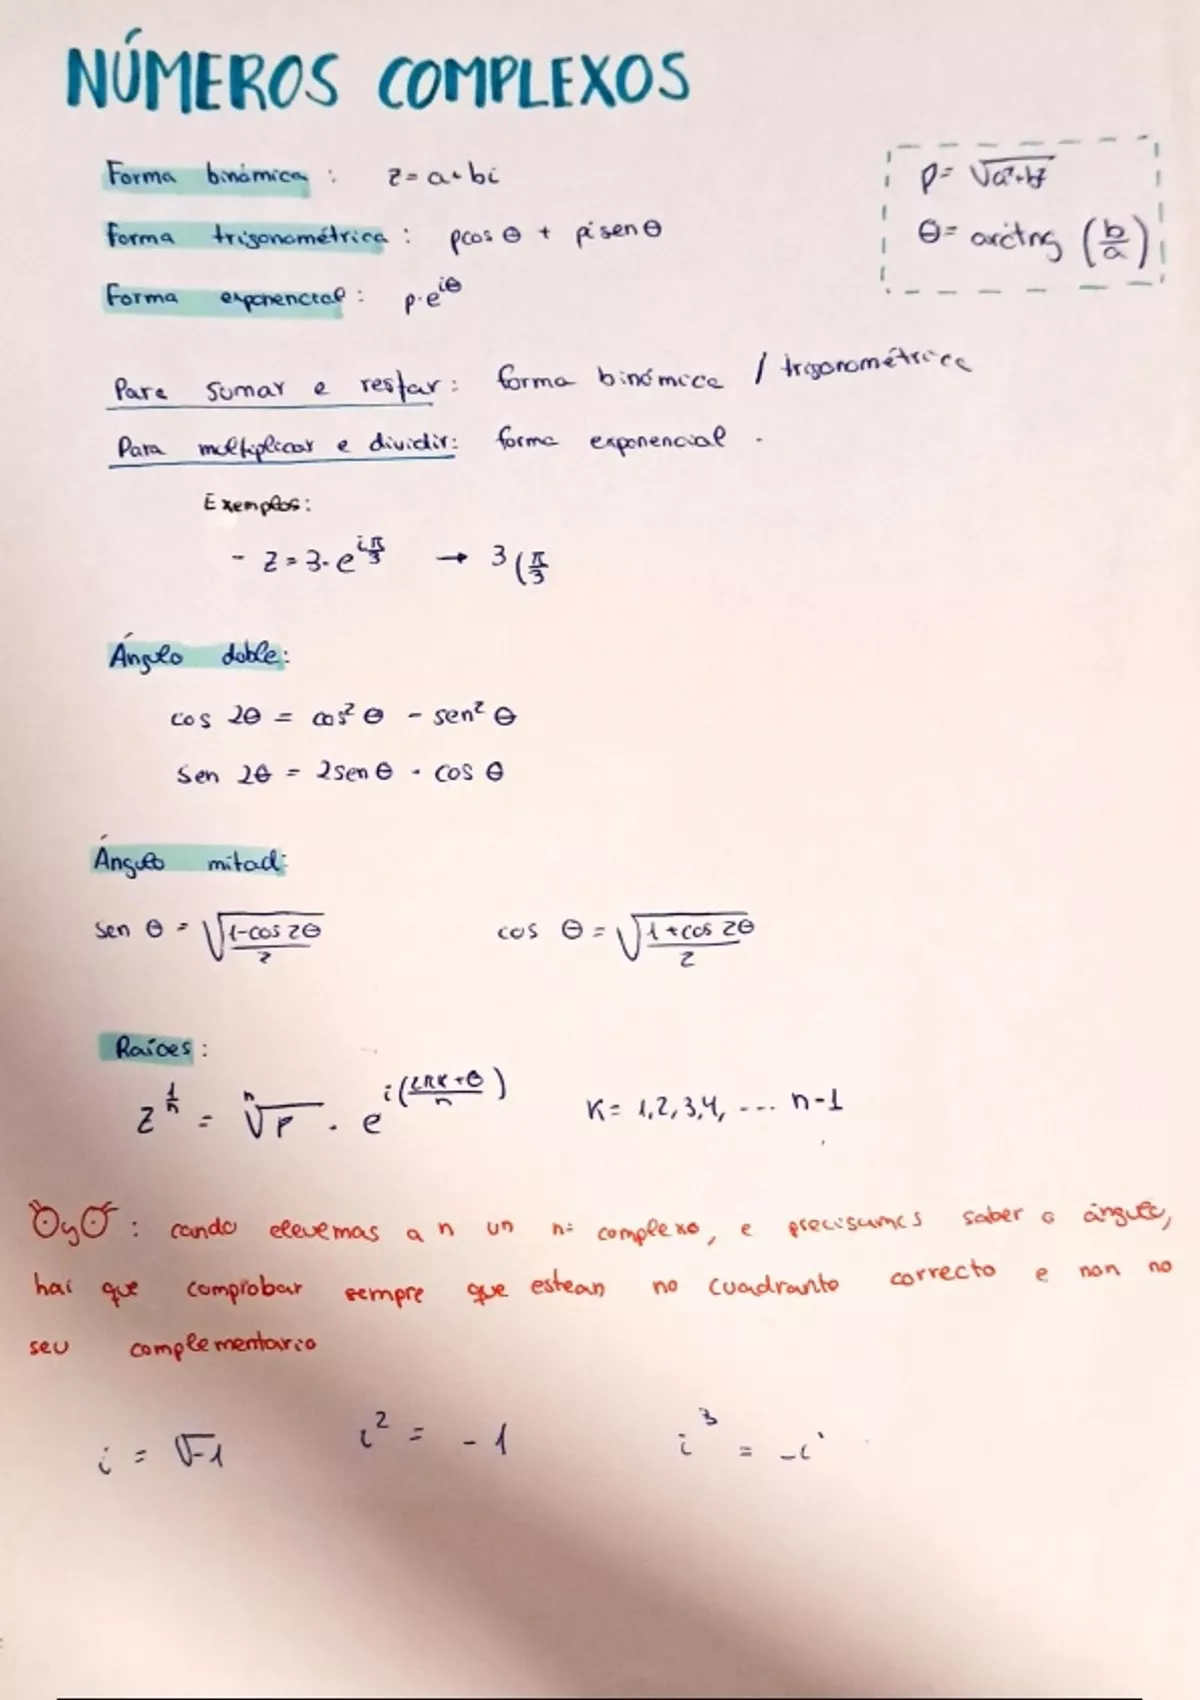 NÚMEROS COMPLEXOS
Forma binómica : z = a + bi
ρ = √a²+b²
Forma trigonométrica : ρcos θ + ρi sen θ
θ = arctng (b/a)
Forma exponencial : ρ·e^iθ
Para sumar e restar : forma binómica / trigonométrica
Para multiplicar e dividir : forma exponencial .
Exemplos :
- z = 3·e^(iπ/3) → 3 (π/3
Ángulo doble :
cos 2θ = cos² θ - sen² θ
sen 2θ = 2 sen θ · cos θ
Ángulo mitad :
sen θ = √(1-cos 2θ)/2 cos θ = √(1+cos 2θ)/2
Raíces :
z^(1/n) = ⁿ√ρ · e^i((2πK+θ)/n) K = 1,2,3,4, .... n-1
OyO : cando elevemos a n un nº complexo, e precisamos saber o ángulo,
hai que comprobar sempre que estean no cuadrante correcto e non no
seu complementario
i = √-1 i² = -1 i³ = -i